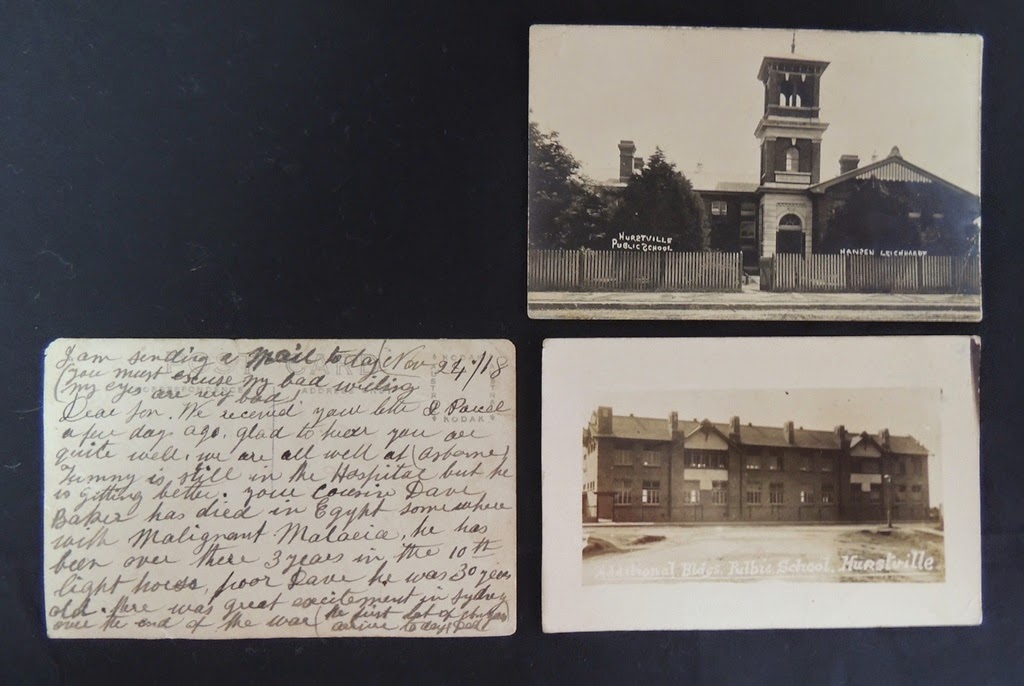 HURSTVILLE
PUBLIC SCHOOL
HANSEN LEICHHARDT
I am sending a mail to day Nov 24/18
(you must excuse my bad writing
my eyes are very bad)
Dear Jon. We received your letter & Parcel
a few days ago, glad to hear you are
quite well, we are all well at (Osborne)
Jimmy is still in the Hospital but he
is getting better. your Cousin Dave
Baker has died in Egypt somewhere
with Malignant Malaeia, he has
been over there 3 years in the 10th
light horse, poor Dave he was 30 years
old. there was great excitement in Sydney
over the end of the war (the first lot of
arrive to day)
POST CARD
CORRESPONDENCE
ADDRESS
KODAK
AUSTRALIA
KODAK
Additional Bldgs. Pulbic School. Hurstville.